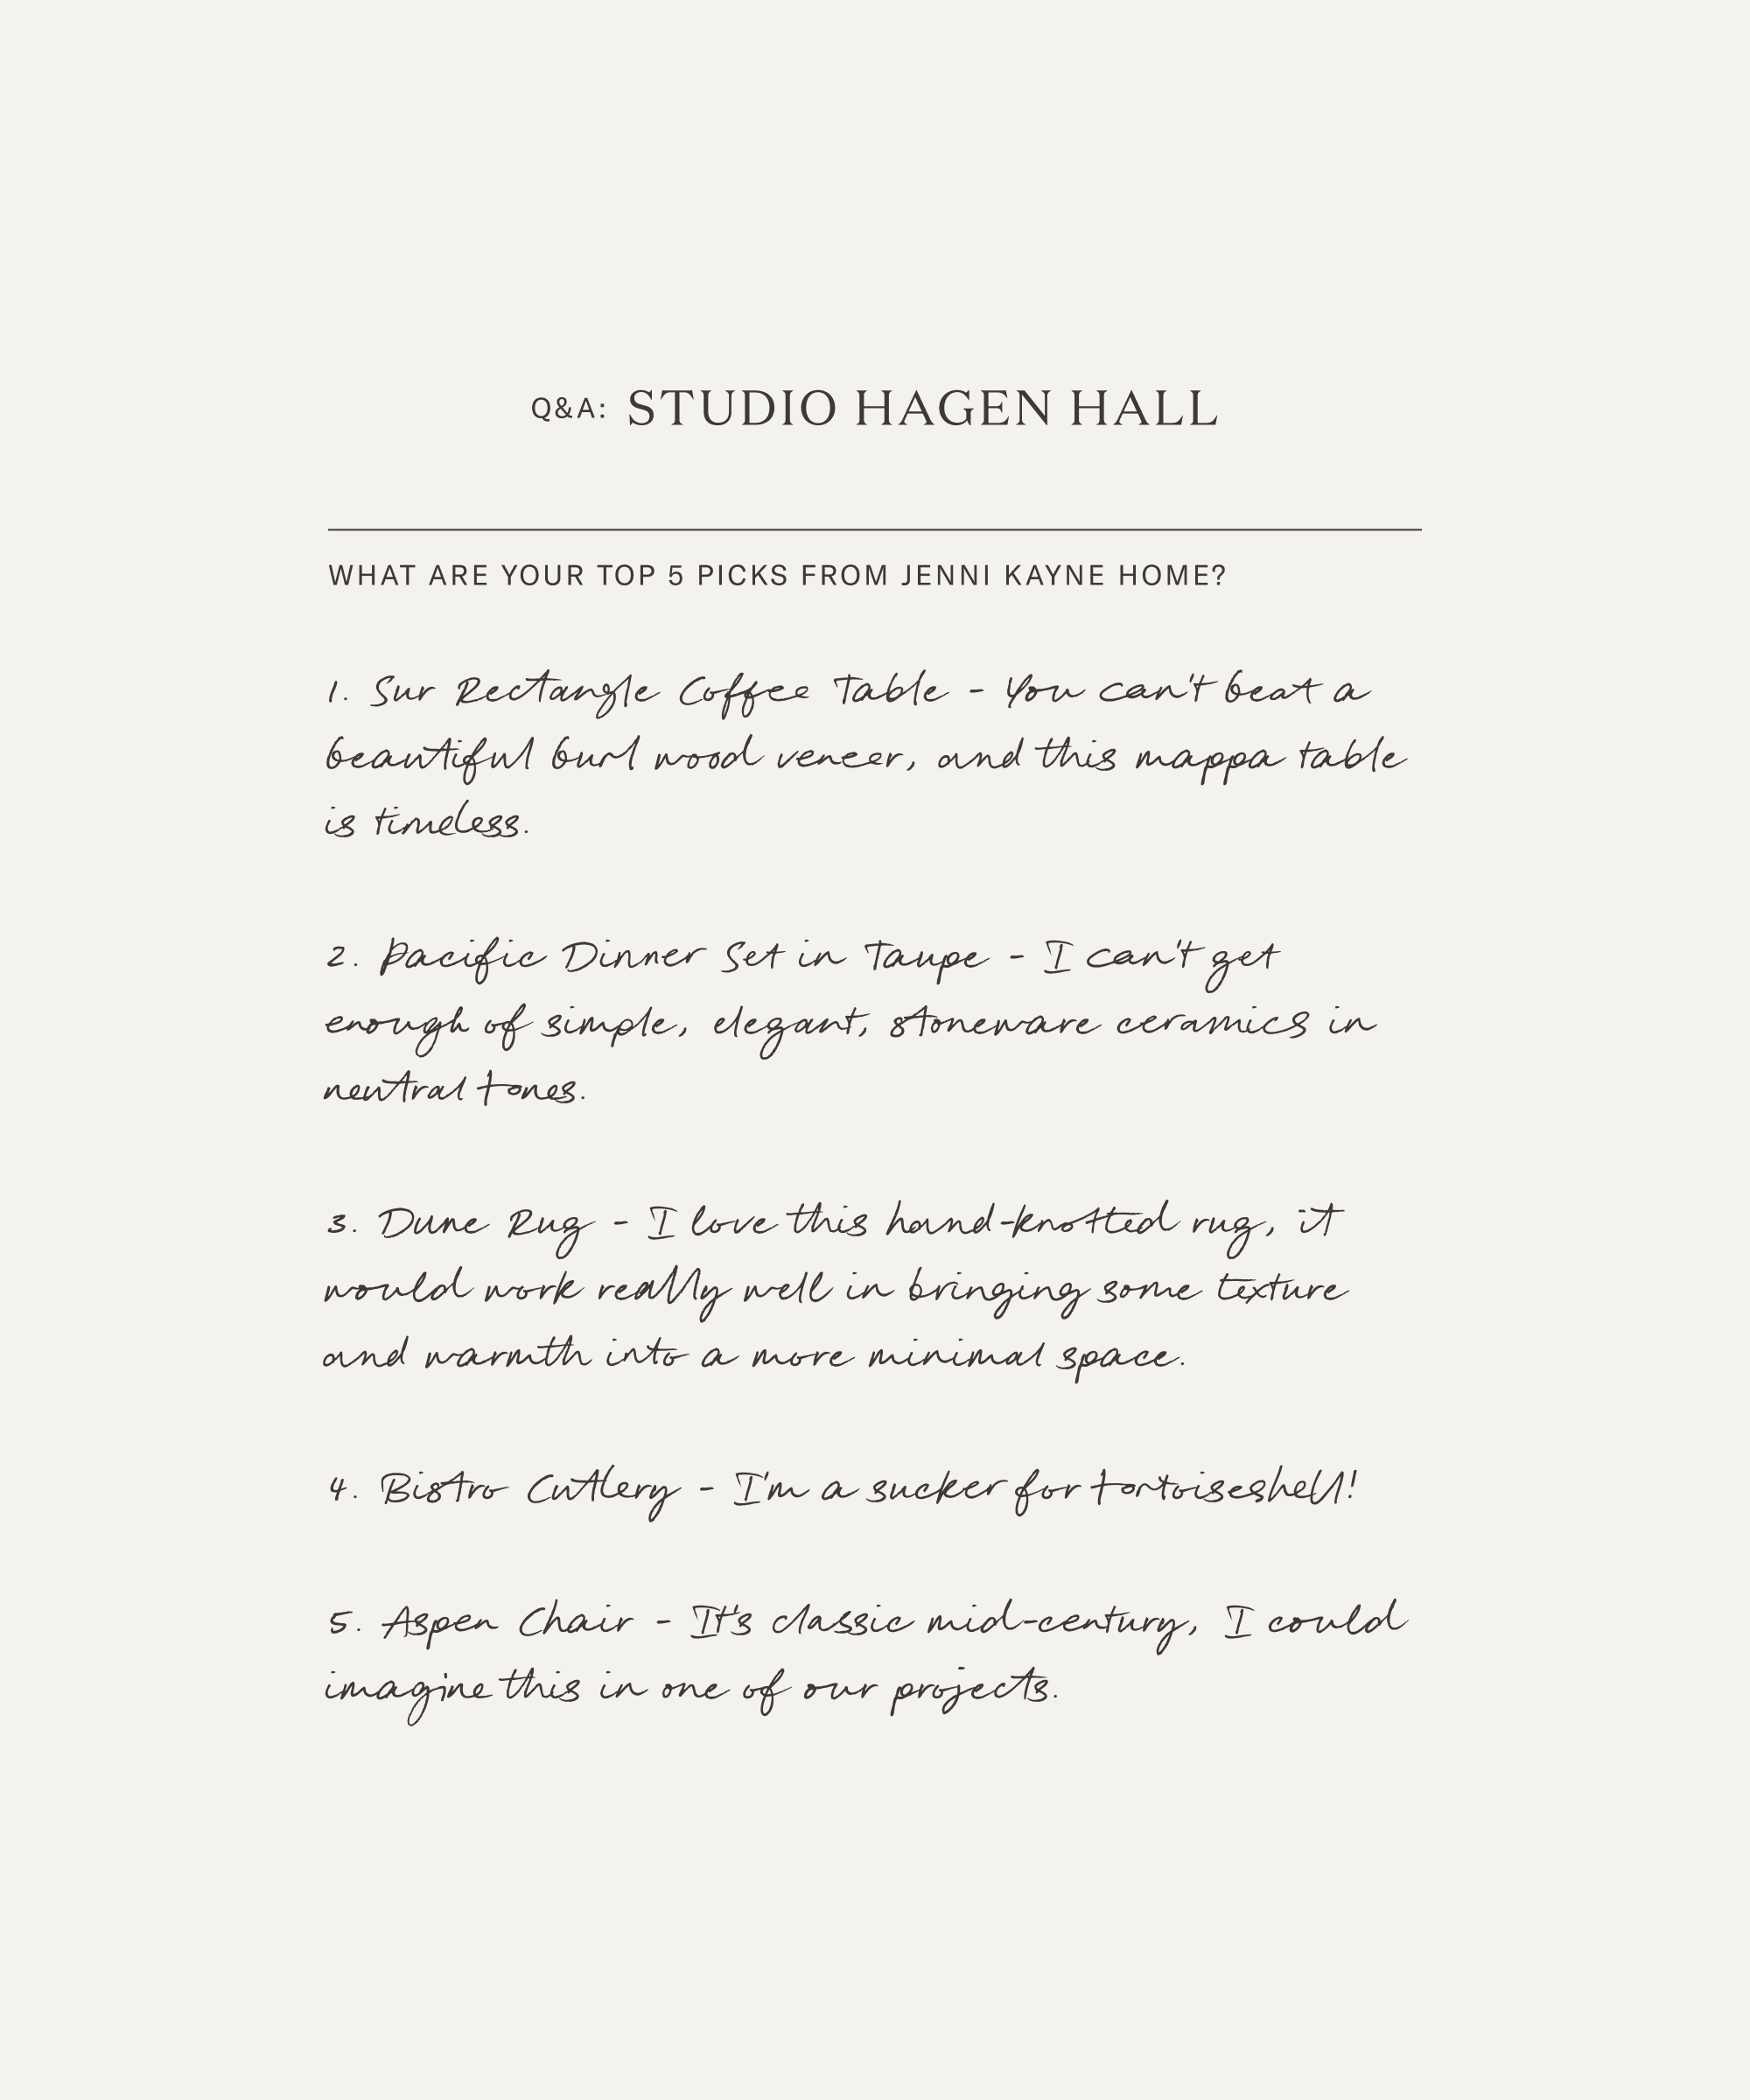 Q&A: STUDIO HAGEN HALL
WHAT ARE YOUR TOP 5 PICKS FROM JENNI KAYNE HOME?
1. Sur Rectangle Coffee Table - You can't beat a
beautiful burl wood veneer, and this mappa table
is timeless.
2. Pacific Dinner Set in Taupe - I can't get
enough of simple, elegant, stoneware ceramics in
neutral tones.
3. Dune Rug - I love this hand-knotted rug, it
would work really well in bringing some texture
and warmth into a more minimal space.
4. Bistro Cutlery - I'm a sucker for tortoiseshell!
5. Aspen Chair - It's classic mid-century, I could
imagine this in one of our projects.